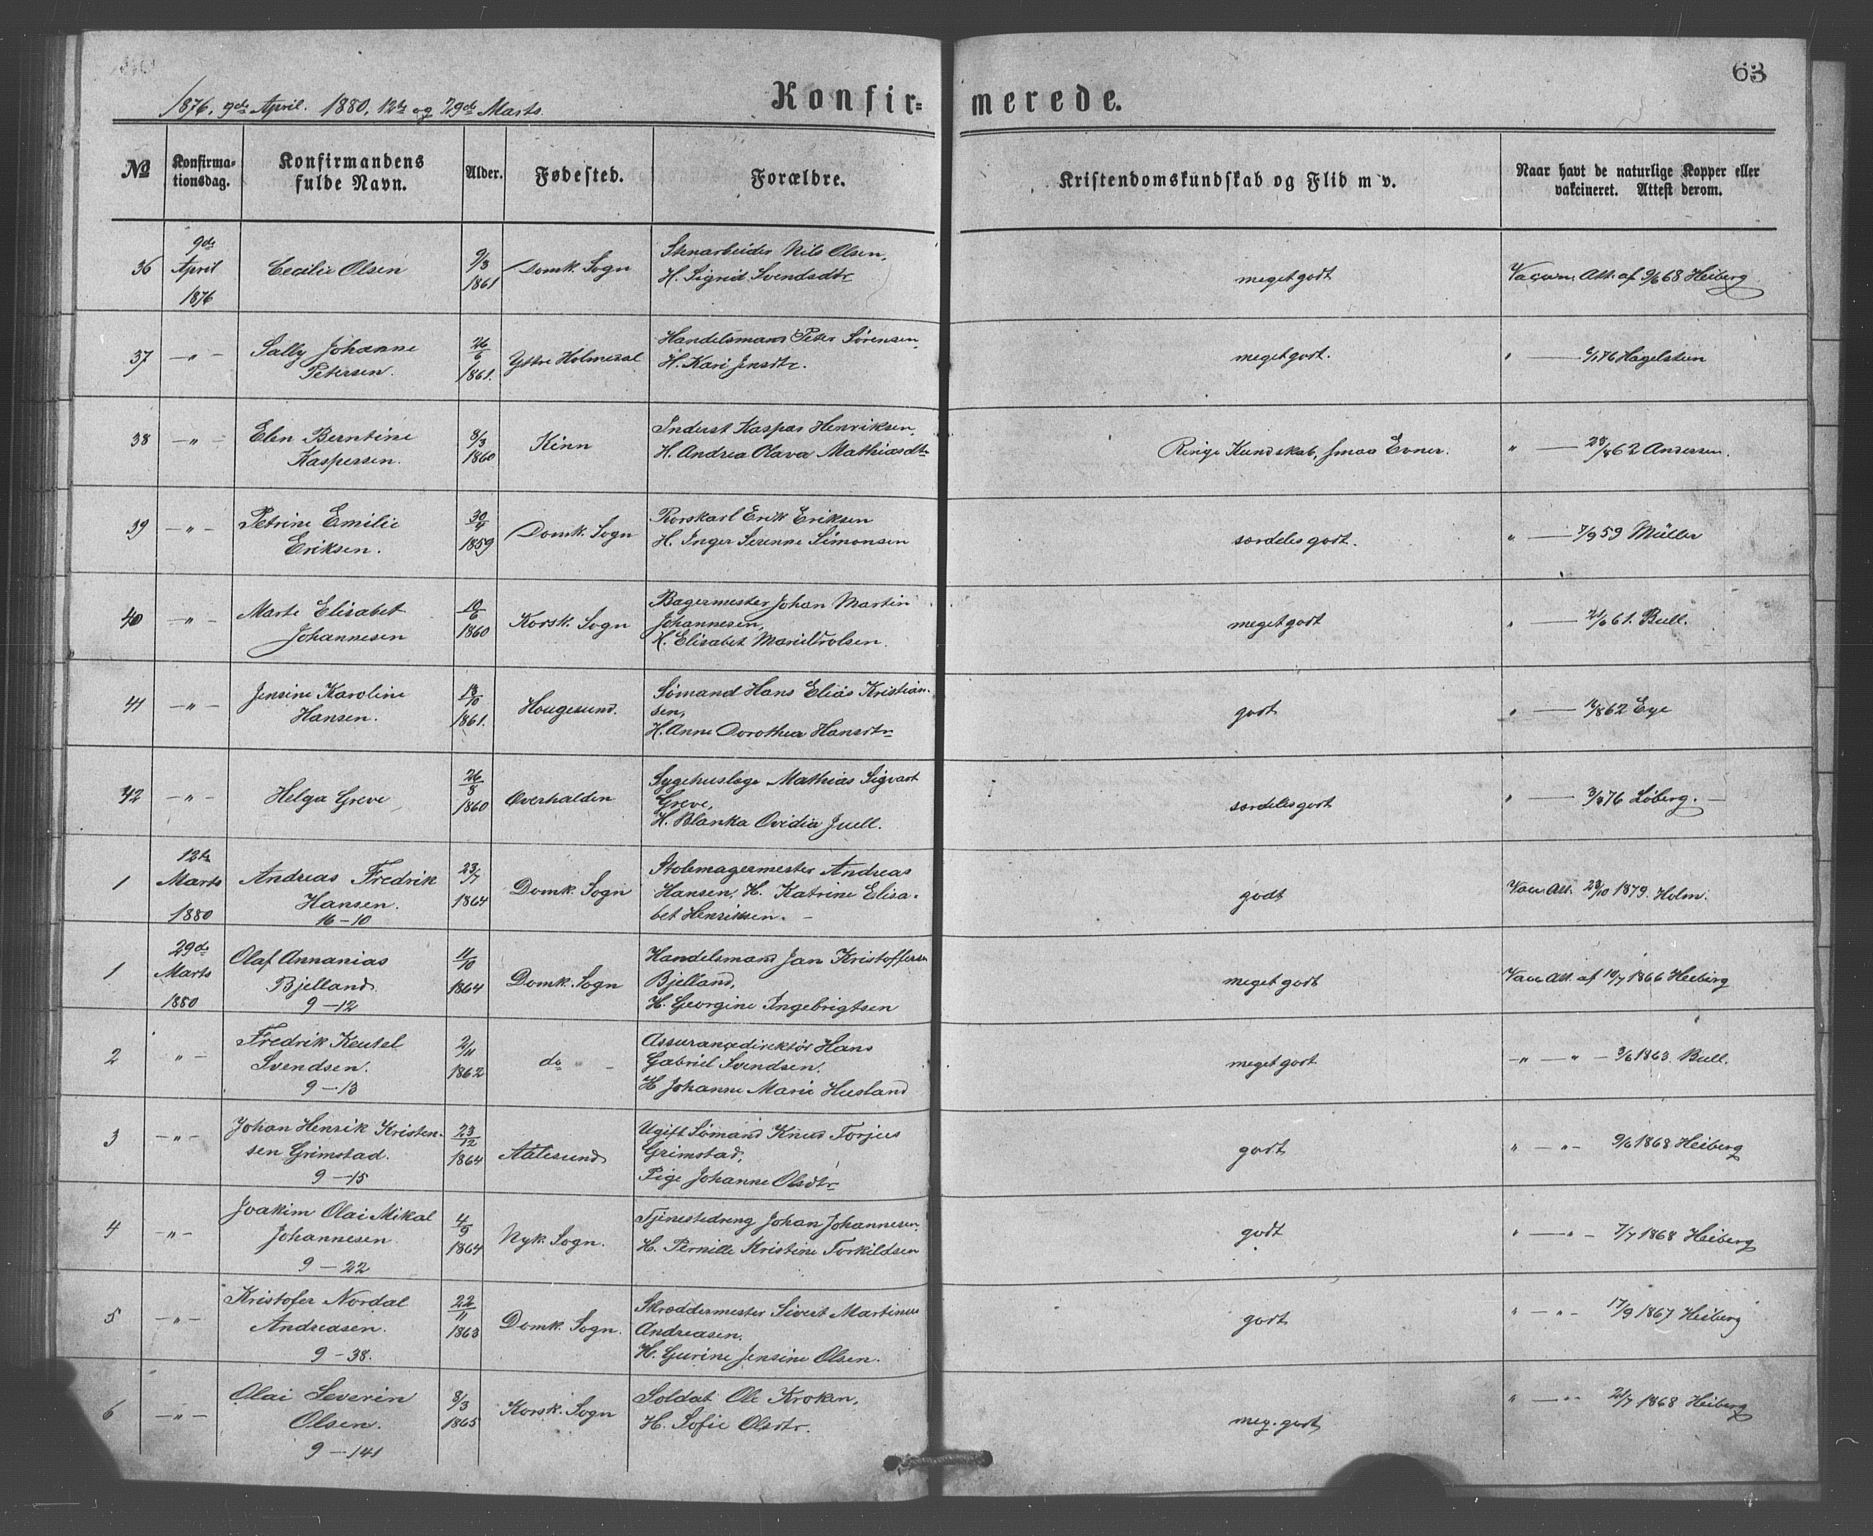 63
1876, 9de April. 1880, 12te og 29de Marts.
Konfir= merede.
No
Konfirma-
tionsdag.
Konfirmandens
fulde Navn.
Alder.
Fødested.
Forældre.
Kristendomskundskab og Flid m v.
Naar havt de naturlige Kopper eller
vakcineret. Attest derom.
36 9de April 1876 Cecilie Olsen 9/3 1861 Domk. Sogn
Stenarbeider Nils Olsen,
H. Sigrid Svendsdtr
meget godt
Vaccin. Att. af 9/6 68 Heiberg
37 — " — Sally Johanne
Petersen. 26/6 1861. Yttre Holmedal
Handelsmand Peter Sørensen,
H. Kari Jensdtr.
meget godt.
" — 6/1 76 Hagelsteen
38 — " — Elen Berntine
Kaspersen. 8/3 1860 Kinn
Inderst Kaspar Henriksen
H. Andrea Olava Mathiasdtr
Ringe Kundskab, smaa Evner.
" — 28/8 62 Andersen.
39 — " — Petrine Emilie
Eriksen. 30/4 1859 Domk. Sogn
Rorskarl Erik Eriksen
H. Inger Serenne Simonsen
særdeles godt.
" — 7/9 59 Müller
40 — " — Marte Elisabet
Johannesen 10/6 1860 Korsk. Sogn
Bagermester Johan Martin
Johannesen,
H. Elisabet Marie
meget godt
" — 21/6 61. Bull.
41 — " — Jensine Karoline
Hansen. 13/10 1861. Hougesund.
Sømand Hans Elias Kristian-
sen,
H. Anne Dorothea Hansdtr
godt
" — 11/8 62 Eye
42 — " — Helga Greve 26/8 1860 Overhalden
Sygehuslæge Mathias Sigvart
Greve,
H. Blanka Ovidia Juell.
særdeles godt
" — 3/4 76 Løberg. —
1 12te Marts 1880 Andreas Fredrik
Hansen.
16 — 10 23/7 1864 Domk. Sogn
Stolmagermester Andreas
Hansen, H. Katrine Elisa-
bet Henriksen. —
godt
Vacc. Att. 28/10 1879. Holm.
1 29de Marts 1880 Olaf Annanias
Bjelland.
9 — 12 11/10 1864 Domk. Sogn
Handelsmand Jan Kristoffersen
Bjelland,
H. Georgine Ingebrigtsen
meget godt
Vacc. Att. af 10/7 1866 Heiberg
2 " — Fredrik Keutel
Svendsen.
9 — 13 2/11 1862 do " —
Assurancedirektør Hans
Gabriel Svendsen.
H. Johanne Marie Husland
meget godt
— " — " — 3/6 1863 Bull.
3 — " — Johan Henrik Kristen-
sen Grimstad.
9 — 15 23/12 1864 Aalesund
Ugift Sømand Knud Torjus
Grimstad,
Pige Johanne Olsdtr
godt
" — " — 9/6 1868 Heiberg
4 — " — Joakim Olai Mikal
Johannesen
9 — 22 4/9 1864 Nyk. Sogn.
Tjenestedreng Johan Johannesen,
H. Pernille Kristine Torkildsen
godt
" — " — 7/7 1868 Heiberg
5 — " — Kristofer Nordal
Andreasen.
9 — 38. 22/11 1863 Domk. Sogn.
Skræddermester Sivert Martinus
Andreasen.
H. Gurine Jensine Olsen.
godt
" — " — 17/9 1867 Heiberg
6 — " — Olai Severin
Olsen.
9 — 141 8/3 1865 Korsk. Sogn
Soldat Ole Kroken,
H. Sofie Olsdtr.
meg. godt
" — " — 21/7 1868 Heiberg